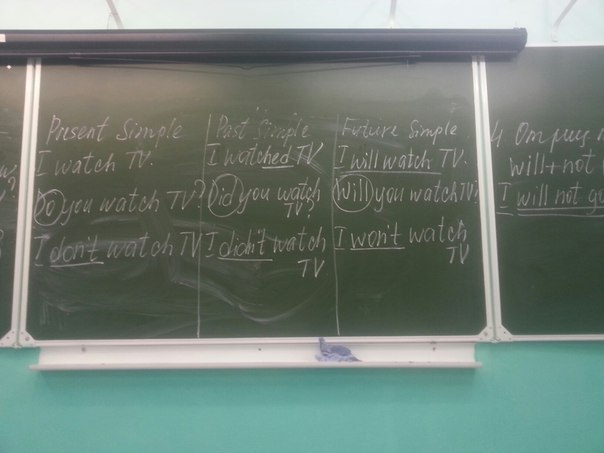 Present Simple
I watch TV.
Do you watch TV?
I don't watch TV
Past Simple
I watched TV
Did you watch
TV?
I didn't watch
TV
Future Simple
I will watch TV.
Will you watch TV?
I won't watch
TV
4.
will + not
I will not go